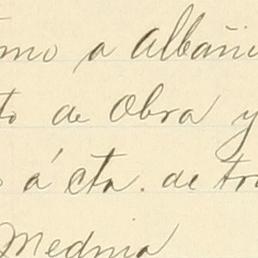 a Albañi
to de Obra y
á cta. de tra
Medina